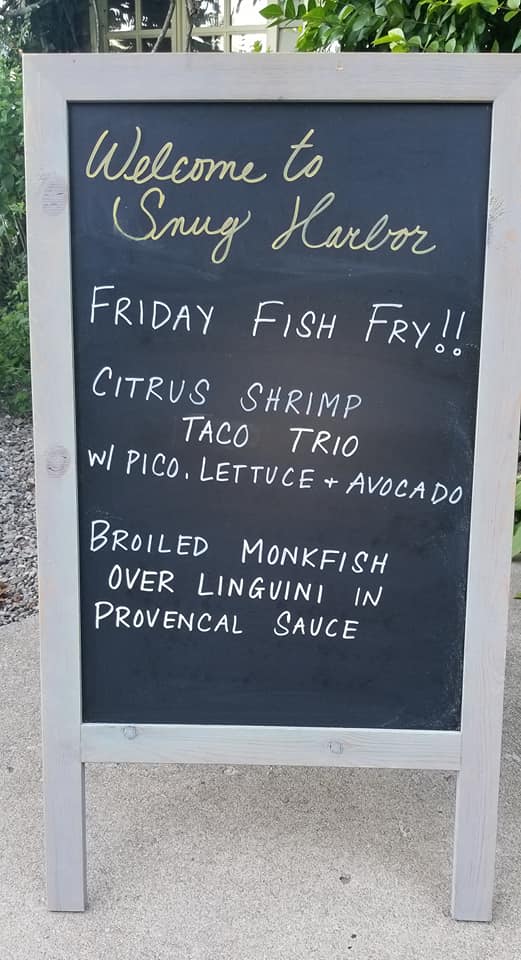 Welcome to
Snug Harbor
FRIDAY FISH FRY!!
CITRUS SHRIMP
TACO TRIO
W/ PICO, LETTUCE + AVOCADO
BROILED MONKFISH
OVER LINGUINI IN
PROVENCAL SAUCE